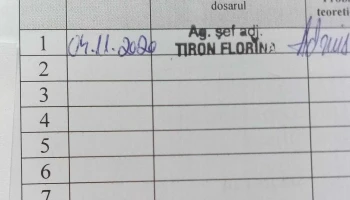 dosarul
teoreti
Ag. șef adj.
1 04.11.2020 TIRON FLORINA Admis
2
3
4
5
6
7